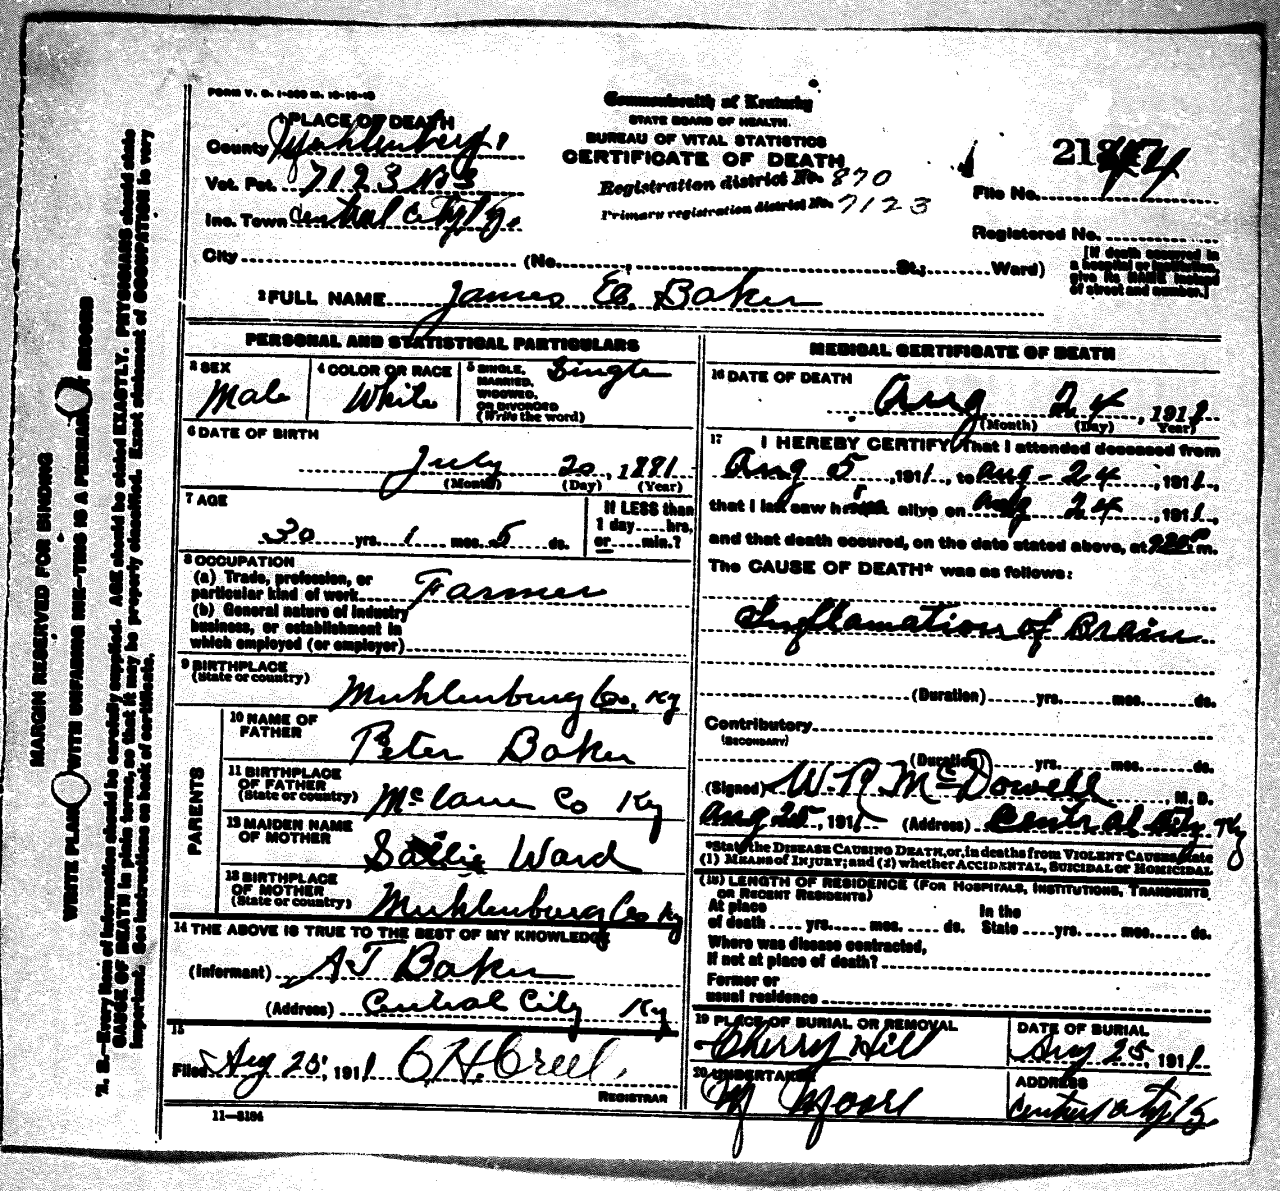 FORM V. S. 1-
Commonwealth of Kentucky
STATE BOARD OF HEALTH.
BUREAU OF VITAL STATISTICS
CERTIFICATE OF DEATH
Registration district No. 870
Primary registration district No. 7123
File No.
Registered No.
[If death occurred in
a hospital or institution,
give its NAME instead
of street and number.]
1 PLACE OF DEATH
County Muhlenberg
Vot. Pct. 7123 No 3
Inc. Town Central City Ky.
City (No. St.; Ward)
2 FULL NAME James Ed Baker
PERSONAL AND STATISTICAL PARTICULARS
3 SEX
Male
4 COLOR OR RACE
White
5 SINGLE,
MARRIED,
WIDOWED,
OR DIVORCED
(Write the word)
Single
6 DATE OF BIRTH
July 20, 1881
(Month) (Day) (Year)
7 AGE
30 yrs. 1 mos. 5 ds.
If LESS than
1 day hrs.
or min.?
8 OCCUPATION
(a) Trade, profession, or
particular kind of work Farmer
(b) General nature of industry
business, or establishment in
which employed (or employer)
9 BIRTHPLACE
(State or country)
Muhlenburg Co. Ky
PARENTS
10 NAME OF
FATHER
Peter Baker
11 BIRTHPLACE
OF FATHER
(State or country)
McLane Co Ky
12 MAIDEN NAME
OF MOTHER
Sallie Ward
13 BIRTHPLACE
OF MOTHER
(State or country)
Muhlenburg Co Ky
14 THE ABOVE IS TRUE TO THE BEST OF MY KNOWLEDGE
(Informant) A J Baker
(Address) Central City Ky
15
Filed Aug 25, 1911 C. H. Creel.
REGISTRAR
11—5184
MEDICAL CERTIFICATE OF DEATH
16 DATE OF DEATH
Aug 24, 1911
(Month) (Day) Year)
17 I HEREBY CERTIFY, That I attended deceased from
Aug 5, 1911, to Aug - 24, 1911,
that I last saw him alive on Aug 24, 1911,
and that death occured, on the date stated above, at m.
The CAUSE OF DEATH* was as follows:
Inflamation of Brain
(Duration) yrs. mos. ds.
Contributory
(SECONDARY)
(Duration) yrs. mos. ds.
(Signed) W. R. McDowell, M. D.
Aug 25, 191 (Address) Central City Ky
*State the DISEASE CAUSING DEATH, or, in deaths from VIOLENT CAUSES, state
(1) MEANS of INJURY; and (2) whether ACCIDENTAL, SUICIDAL or HOMICIDAL
(18) LENGTH OF RESIDENCE (FOR HOSPITALS, INSTITUTIONS, TRANSIENTS
OR RECENT RESIDENTS)
At place
of death yrs. mos. ds.
In the
State yrs. mos. ds.
Where was disease contracted,
If not at place of death?
Former or
usual residence
19 PLACE OF BURIAL OR REMOVAL
Cherry Hill
DATE OF BURIAL
Aug 25, 1911
20 UNDERTAKER
M Moore
ADDRESS
Central City Ky.
MARGIN RESERVED FOR BINDING
WRITE PLAINLY WITH UNFADING INK—THIS IS A PERMANENT RECORD
N. B.—Every item of information should be carefully supplied. AGE should be stated EXACTLY. PHYSICIANS should state
CAUSE OF DEATH in plain terms, so that it may be properly classified. Exact statement of OCCUPATION is very
important. See instructions on back of certificate.